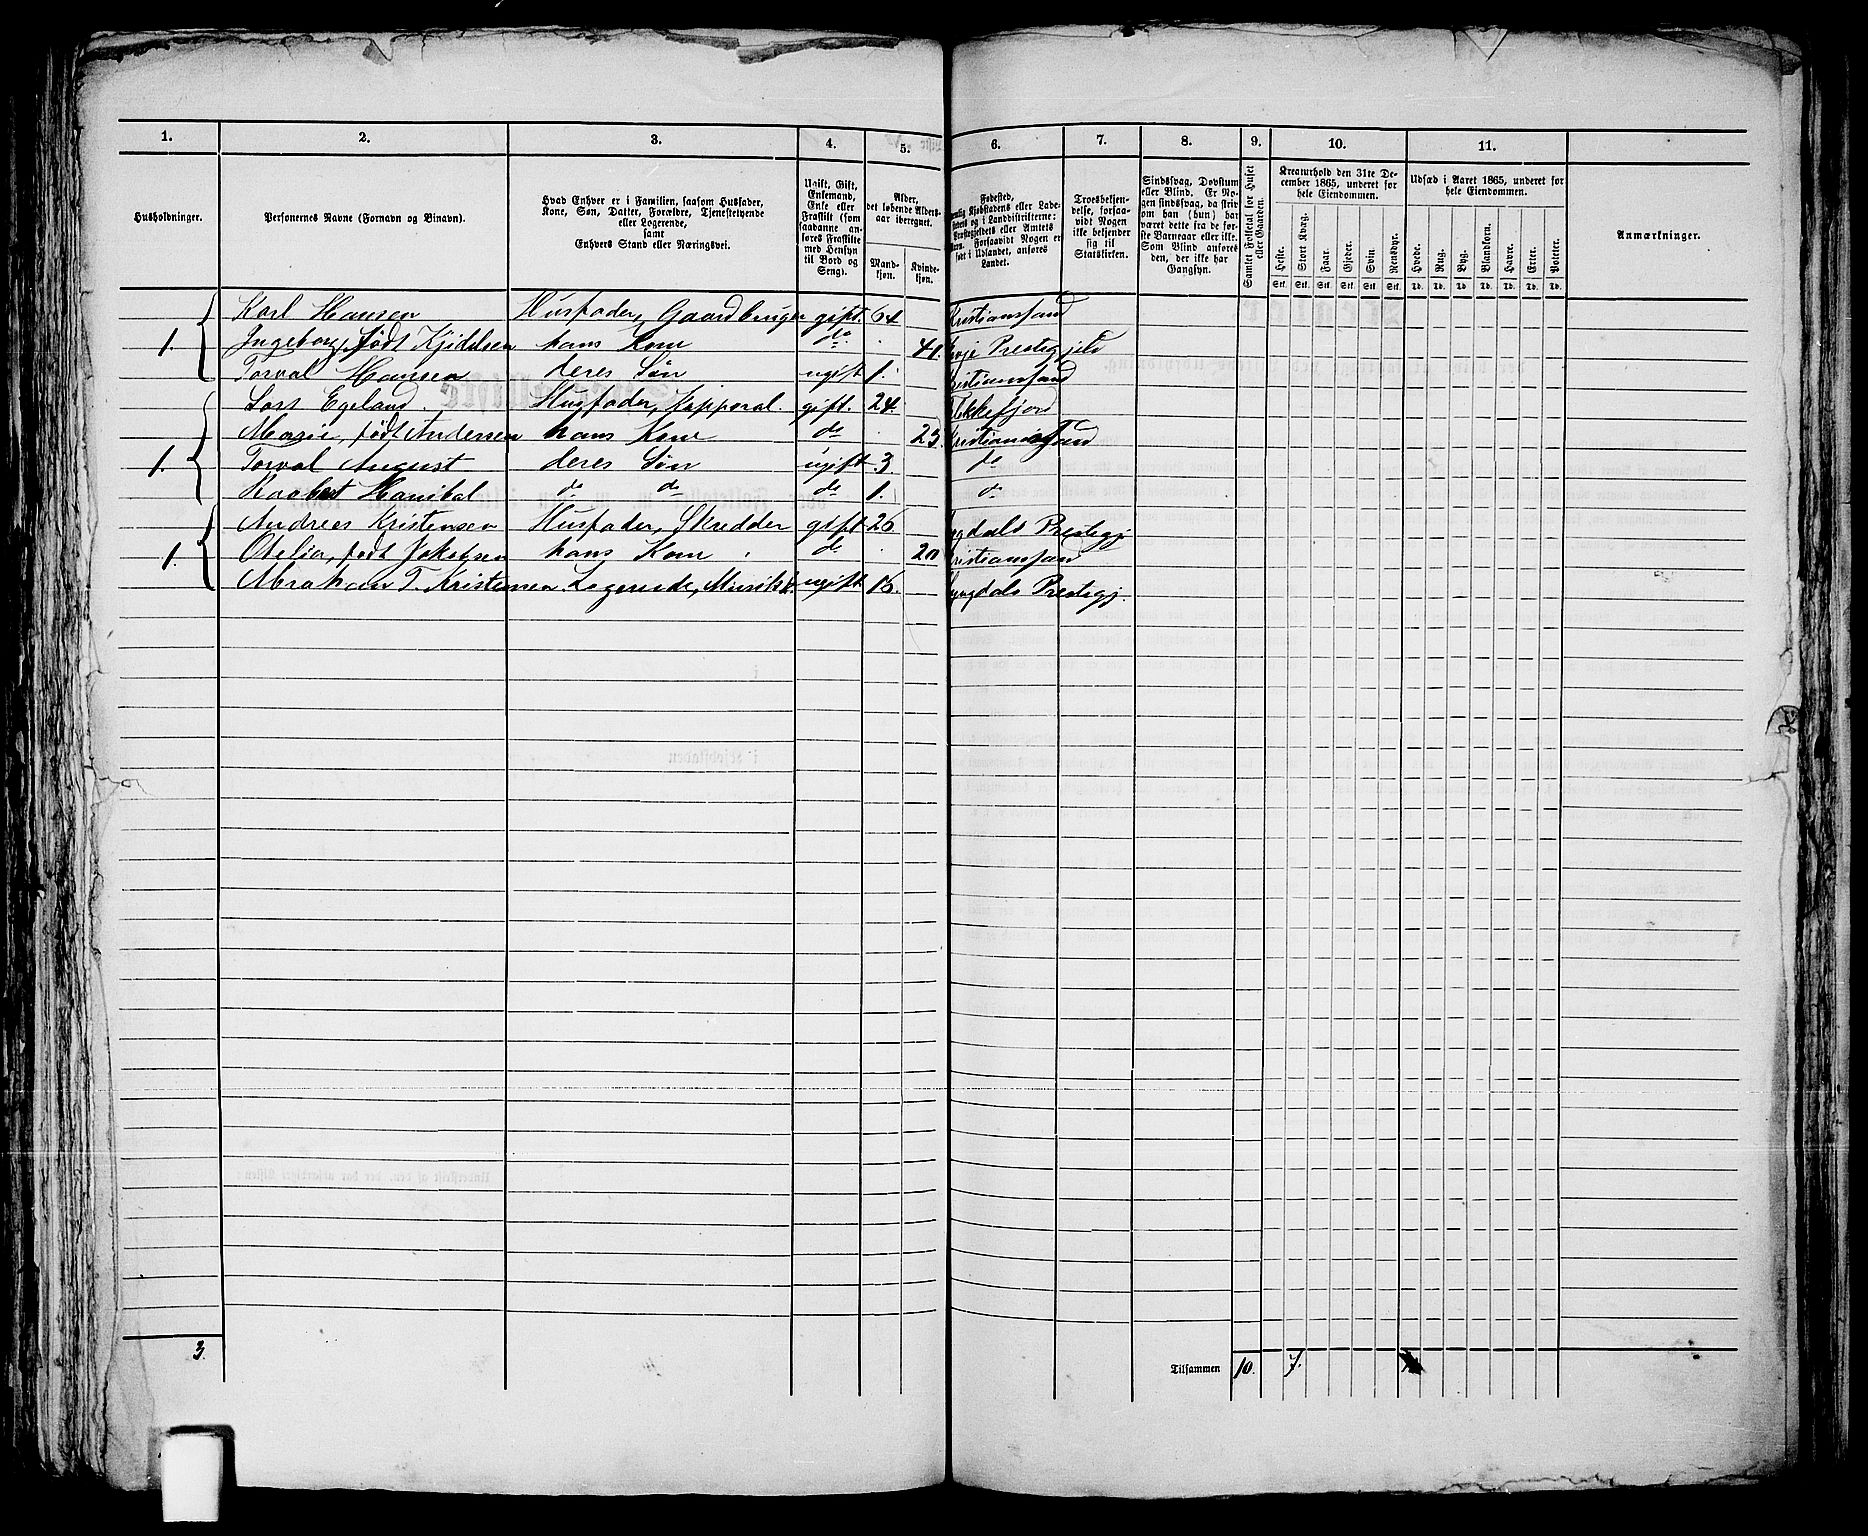 1. 2. 3. 4. 5. 6. 7. 8. 9. 10. 11.
Husholdninger.
Personernes Navne (Fornavn og Binavn).
Hvad Enhver er i Familien, saasom Husfader,
Kone, Søn, Datter, Forældre, Tjenestetyende
eller Logerende,
samt
Enhvers Stand eller Næringsvei.
Ugift, Gift,
Enkemand,
Enke eller
Fraskilt (som
saadanne an-
føres Fraskilte
med Hensyn
til Bord og
Seng).
Alder,
det løbende Alders-
aar iberegnet.
Mand-
kjøn.
Kvinde-
kjøn.
Fødested,
Troesbekjen-
delse, forsaa-
vidt Nogen
ikke bekjender
sig til
Statskirken.
Sindssvag, Døvstum
eller Blind. Er No-
gen sindssvag, da skriv
om han (hun) har
været dette fra de før-
ste Barneaar eller ikke.
Som Blind anføres
den, der ikke har
Gangsyn.
Samlet Folketal for Huset
eller Gaarden.
Kreaturhold den 31te De-
cember 1865, underet for
hele Eiendommen.
Heste. Stort Kvæg. Faar. Gjeder. Svin. Rensdyr.
Stk. Stk. Stk. Stk. Stk. Stk.
Udsæd i Aaret 1865, underet for
hele Eiendommen.
Hvede. Rug. Byg. Blandkorn. Havre. Erter. Poteter.
Td. Td. Td. Td. Td. Td. Td.
Anmærkninger.
Karl Hansen Husfader, Gaardbruger gift. 64. Kristianssand
1. Ingeborg, født Kjidelsen hans Kone do. 41. Prestegjeld
Torval Hansen deres Søn ugift 1. Kristianssand
Lars Egeland. Husfader, Kopporal. gift. 24. Flekkefjord
Marie, født Andersen hans Kone do 23. Kristianssand
1. Torval August deres Søn ugift 3. do
Raabert Hanibal do do do 1. do
Andreas Kristensen Husfader, Skredder gift 26 Lyngdals Prestegj
1. Otelia, født Jakobsen hans Kone do 20 Kristianssand
Abraham T. Kristensen Logerende, ugift 16. Lyngdals Prestegj.
3.
Tilsammen 10. 7.